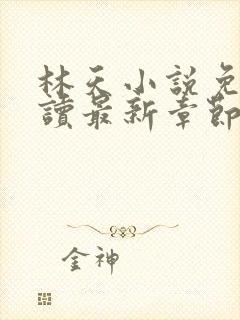 林天小說免
讀最新章節
金神